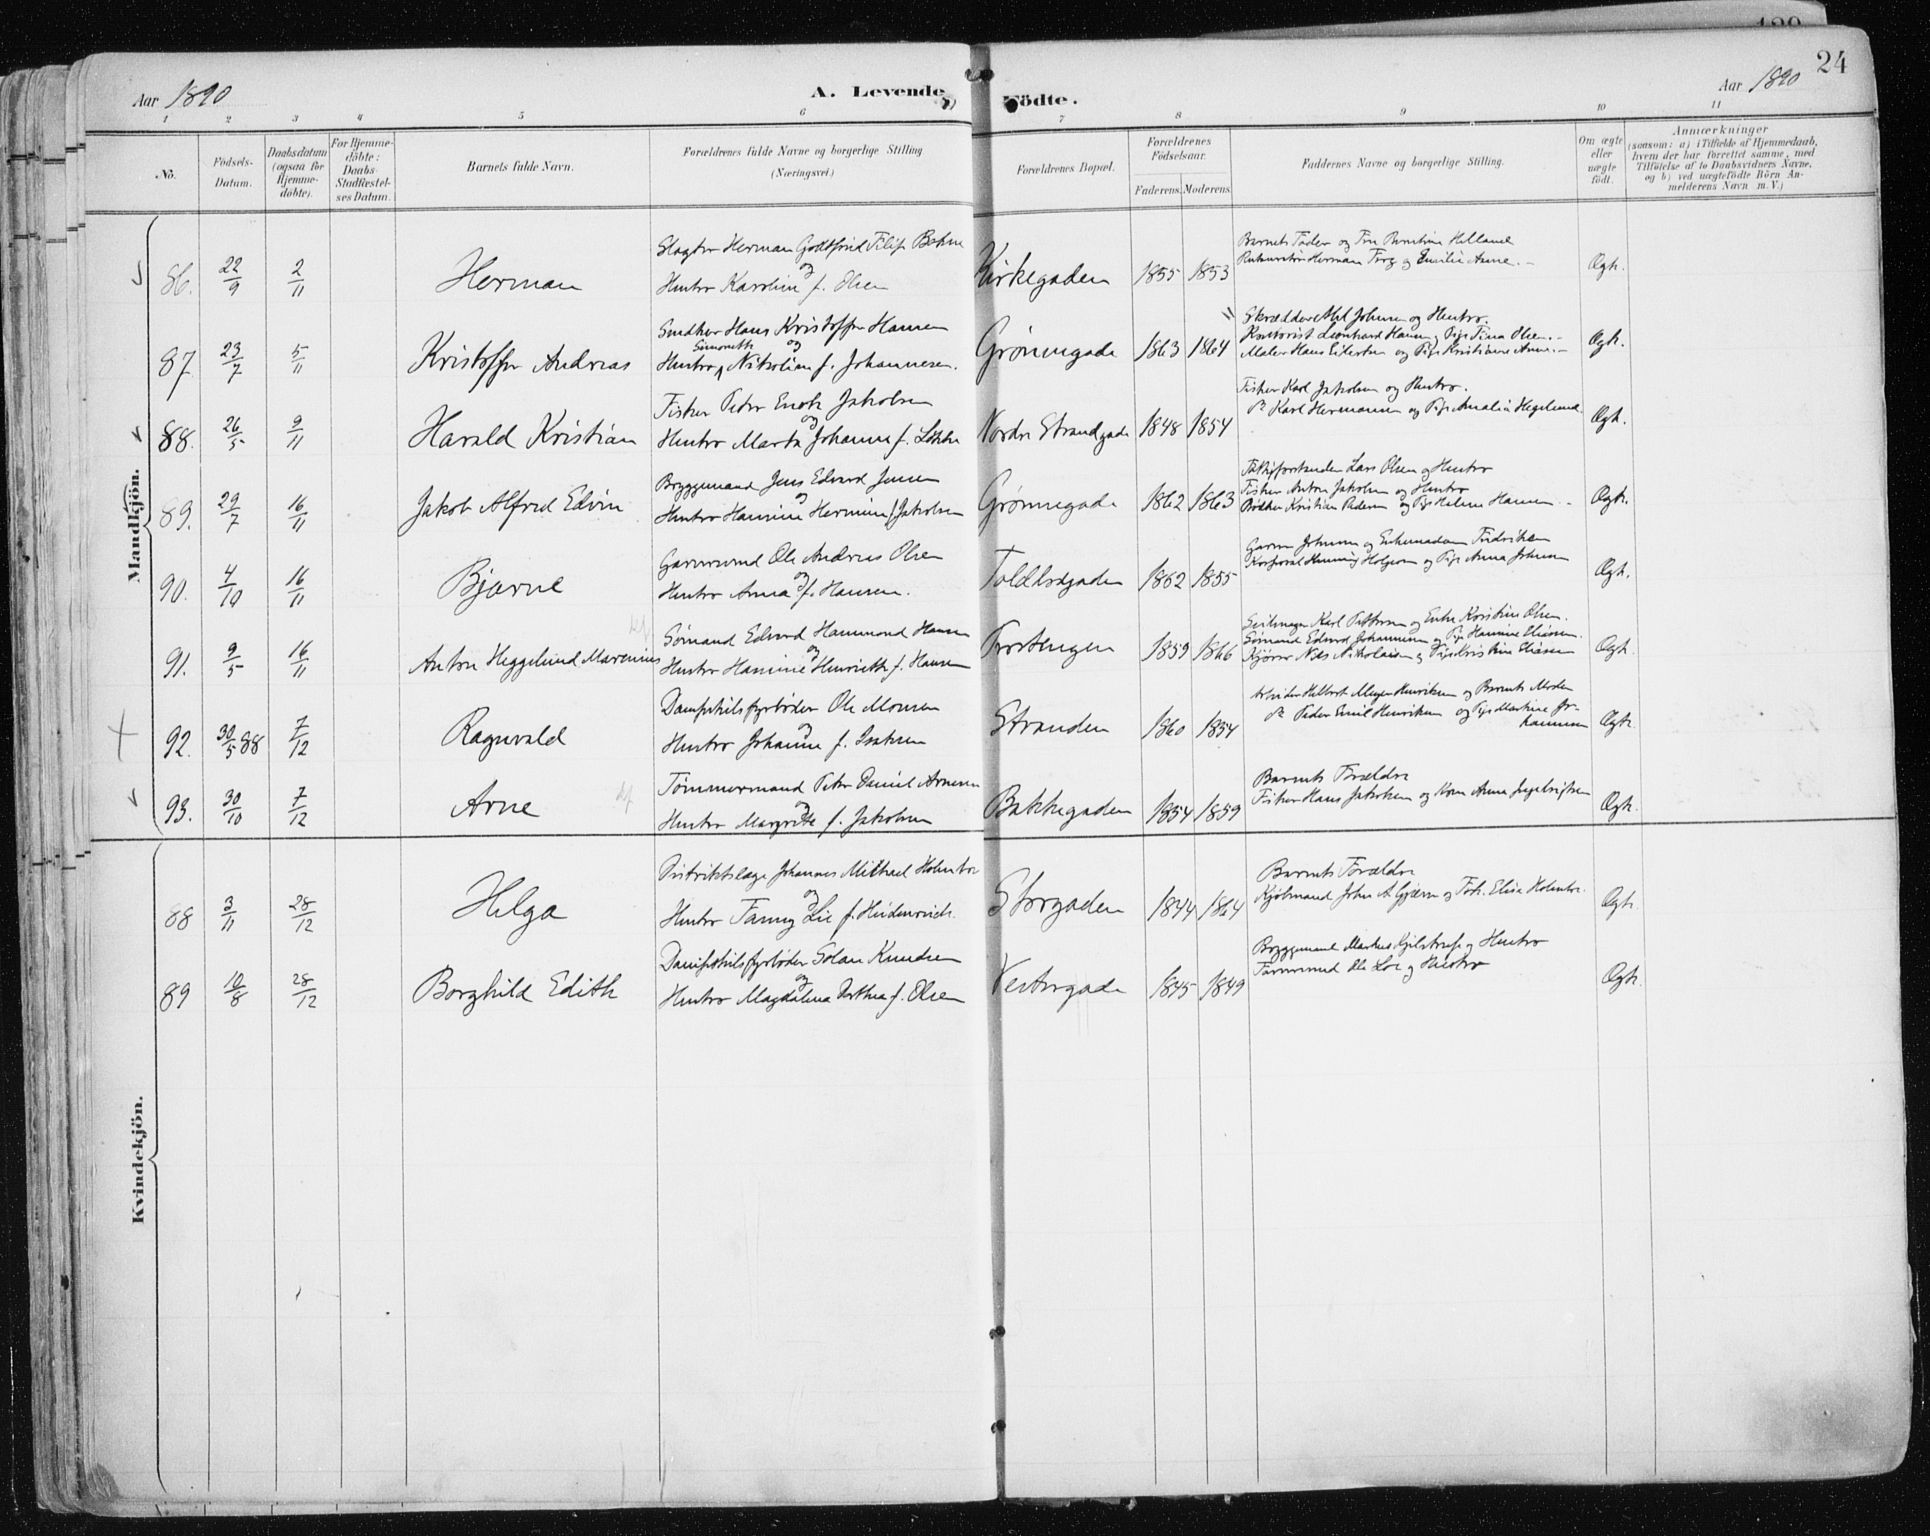 24
Aar 1890
A. Levende
Födte.
Aar 1890
1 2 3 4 5 6 7 8 9 10 11
No.
Födsels-
Datum.
Daabsdatum
(ogsaa for
Hjemme-
döbte).
For Hjemme-
döbte:
Daabs-
Stadfæstel-
ses Datum.
Barnets fulde Navn.
Forældrenes fulde Navne og borgerlige Stilling
(Næringsvei.)
Forældrenes Bopæl.
Forældrenes
Födselsaar.
Faderens. Moderens.
Faddernes Navne og borgerlige Stilling.
Om ægte
eller
uægte
född.
Anmærkninger
(saasom: a) i Tilfælde af Hjemmedaab,
hvem der har forrettet samme, med
Tilföielse af to Daabsvidners Navne,
og b) ved uægtefödte Börn An-
melderens Navn m. V.)
Mandkjön.
86. 22/9 2/11 Herman
Slagter Herman Gottfried Filip
og
Hustru Karoline f. Olsen
Kirkegaden 1855 1853
Barnets Fader og Fru
Herman og Emilie
Ægte.
87. 23/7 5/11 Kristoffer Andreas
Snedker Hans Kristoffer Hansen
og
Hustru Nikoline f. Johannesen.
Grönnegade 1863 1864
Skrædder Johnsen og Hustru.
Kontorist Leonhard Hansen, Pige Tina Olsen.
Maler Hans Eilertsen og Pige Kristiane
Ægte.
88. 26/5 9/11 Harald Kristian
Fisker Peter Enok Jakobsen
og
Hustru Marta Johanna f.
Nordre Strandgade 1848 1854
Fisker Karl Jakobsen og Hustru.
Karl Hermansen og Pige Amalia Hegelund
Ægte.
89. 29/7 16/11 Jakob Alfred Edvin
Bryggemand Jens Edvard Jensen
og
Hustru Hansine Hermine f. Jakobsen
Grönnegade 1862 1863
Lars Olsen og Hustru
Fisker Anton Jakobsen og Hustru
Bödker Kristian Pedersen og Pige Hansen
Ægte.
90. 4/10 16/11 Bjarne
Garversvend Ole Andreas Olsen
og
Hustru Anna f. Hansen.
Toldbodgaden 1862 1855
Garver Johnsen og Enkemadam Fredriksen
Korporal Henning Holgersen og Pige Anna Johnsen
Ægte.
91. 9/5 16/11 Anton Heggelund Marenius
Sömand Edvard Hammond Hansen
og
Hustru Hansine Henriette f. Hansen
1859 1866
Seilmager Karl Pettersen og Enke Kristine Olsen.
Sömand Edvard Johannesen og Pige Hansine Eliasen.
Kjörer Nils Nikolaisen og Pige Kristine Eliasen
Ægte.
92. 30/5 88 7/12 Ragnvald
Dampskibsfyrböder Ole Monsen
og
Hustru Johanne f. Isaksen
Stranden 1860 1854
Arbeider Meyer Henriksen og Barnets Moder
Peder Emil Henriksen og Pige Martine Jo-
hannesen
Ægte.
93. 30/10 7/12 Arne
Tömmermand Peter Daniel Arnesen
og
Hustru Margrete f. Jakobsen
Bakkegaden 1854 1859
Barnets Forældre
Fisker Hans Jakobsen og Kone Anna Ingebrigtsen
Ægte.
Kvindekjön.
88 3/11 28/12 Helga
Distriktslæge Johannes Mikael Holmboe
og
Hustru Fanny Lie f.
Storgaden 1844 1864
Barnets Forældre
Kjöbmand John A Gjæver og Frk. Elise Holmboe.
Ægte.
89 10/8 28/12 Borghild Edith
Dampskibsfyrböder Solan Knudsen
og
Hustru Magdalena Dorthea f. Olsen
Vestregade 1845 1849
Bryggemand Markus Kjilstrup og Hustru
Ole Loe og Hustru
Ægte.